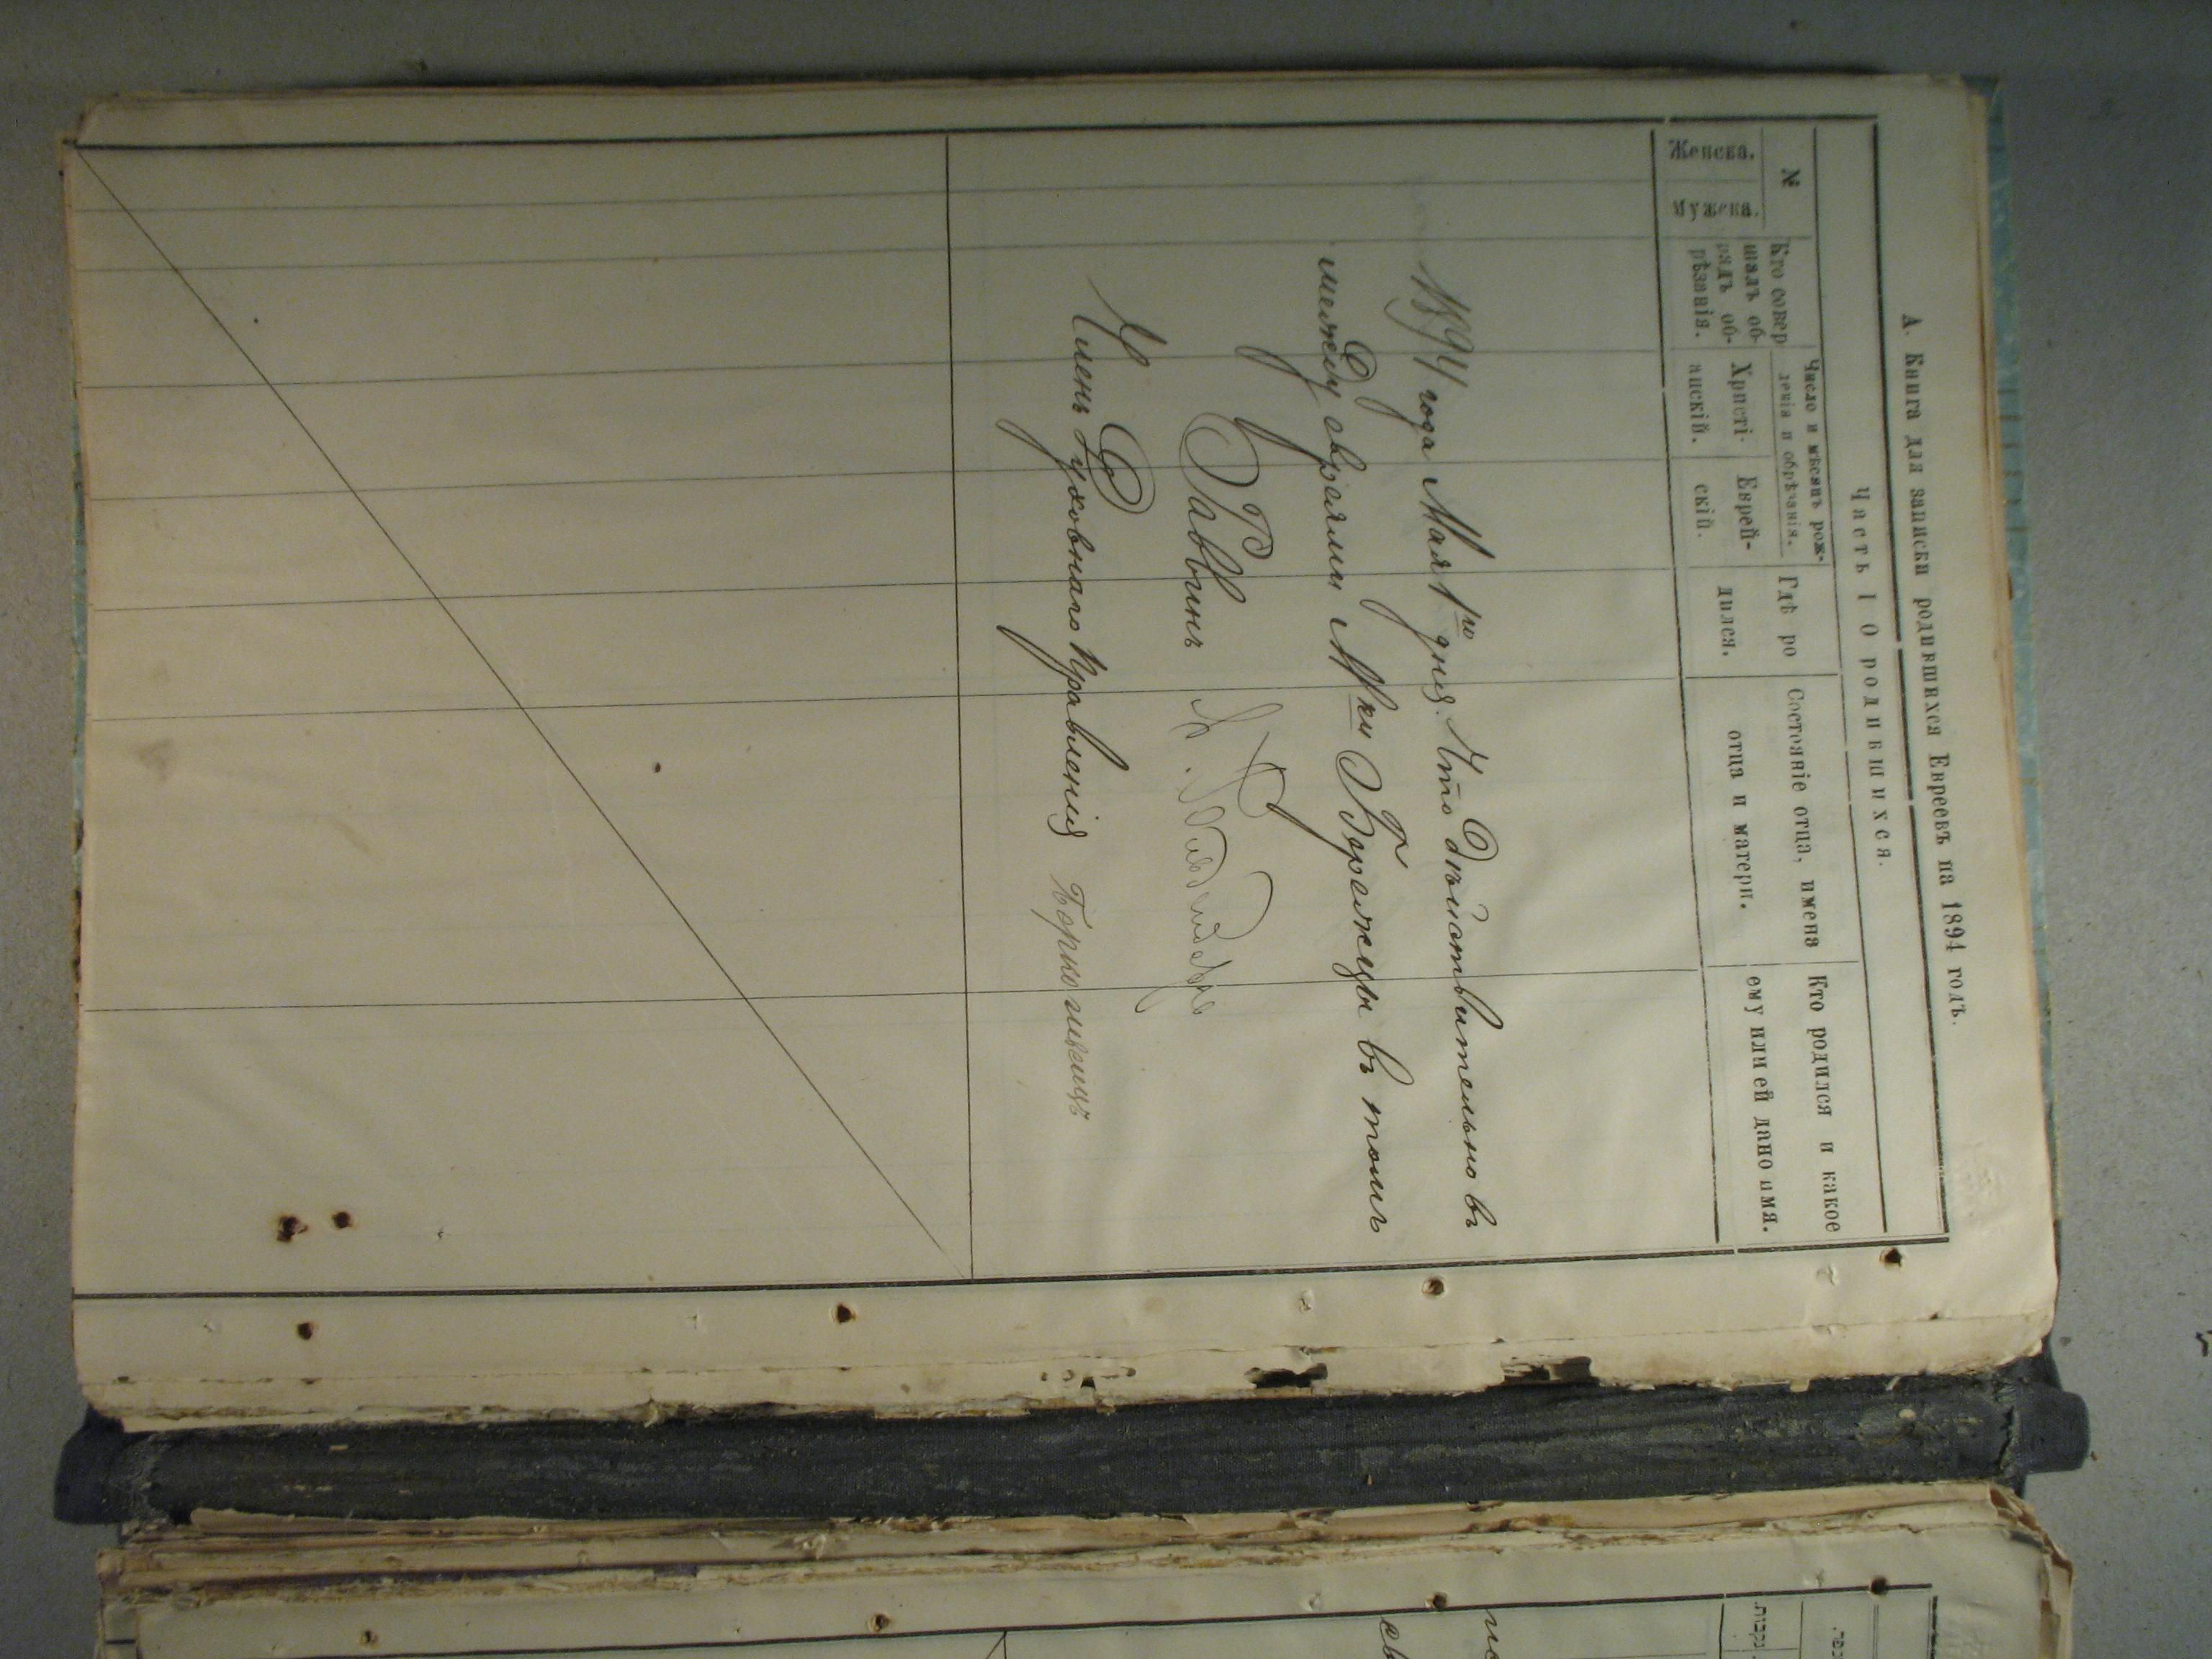 А. Книга для записки родившихся Евреевъ на 1894 годъ.
Часть I О родившихся.
№
Женска.
Мужска.
Кто совер
шалъ об-
рядъ об-
рѣзанія.
Число и мѣсяцъ рож-
денія и обрѣзанія.
Христі-
анскій.
Еврей-
скій.
Гдѣ ро
дился.
Состояніе отца, имена
отца и матери.
Кто родился и какое
ему или ей дано имя.
1894 года Мая 1го дня. Что дѣйствительно въ
между евреями М-ки Бережцы въ томъ
Раввинъ
Членъ Духовнаго Правленія